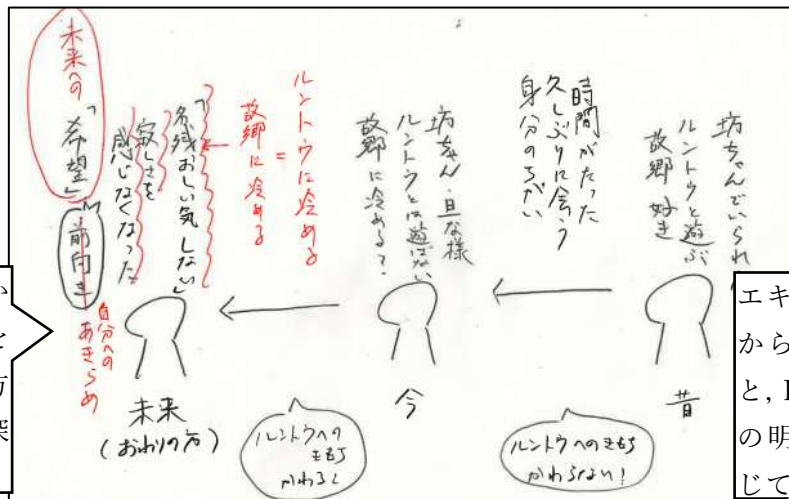 坊ちゃんでいられ
ルントウと遊ぶ
故郷 好き
時間がたった
久しぶりに会う
身分のちがい
坊ちゃん・旦な様
ルントウとは遊ばない
故郷に冷める?
ルントウに冷める
=
故郷に冷める
「名残おしい気しない」
寂しさを
感じなくなった
未来への「希望」
前向き
自分への
あきらめ
昔
今
未来
(おわりの方)
ルントウへのきもち
かわらない!
ルントウへの
きもち
かわる
エキ
から
と,
の明
じて